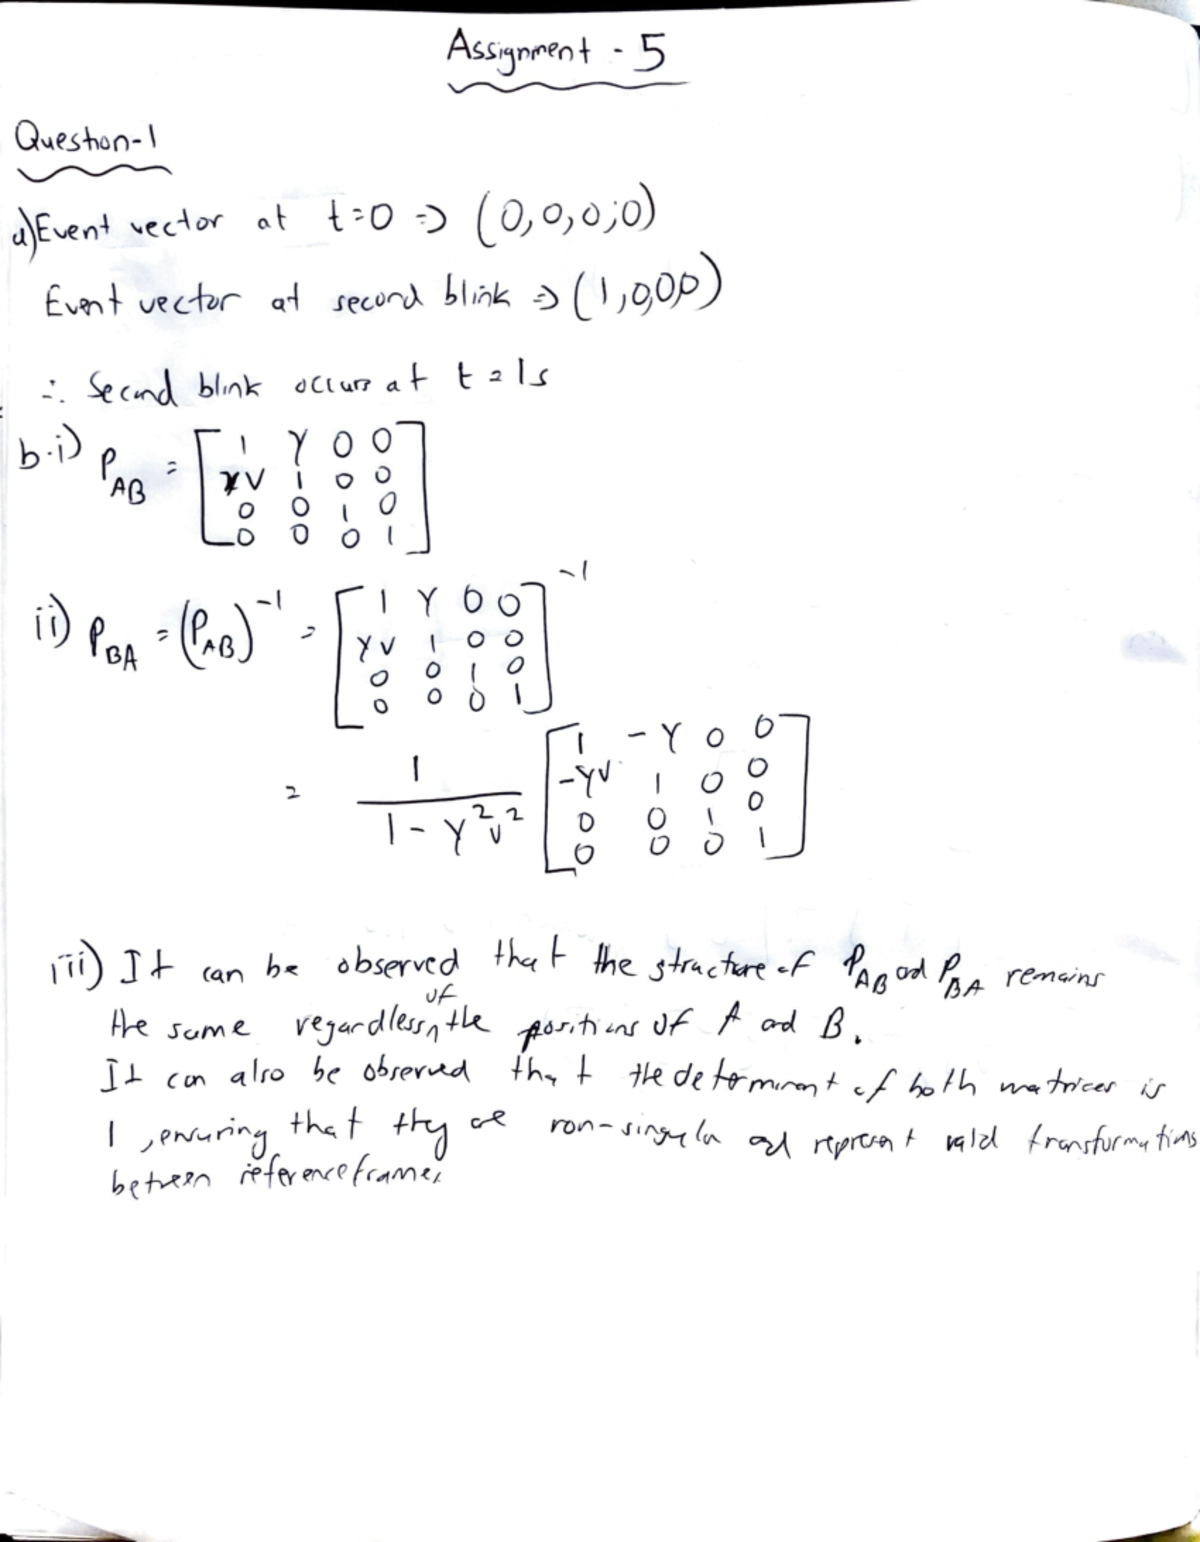 Assignment - 5
Question-1
a) Event vector at t=0 => (0,0,0,0)
Event vector at second blink => (1,0,0,0)
∴ Second blink occurs at t = 1s
b.i) P_AB = [ 1 γ 0 0
γv 1 0 0
0 0 1 0
0 0 0 1 ]
ii) P_BA = (P_AB)^-1 = [ 1 γ 0 0
γv 1 0 0
0 0 1 0
0 0 0 1 ]^-1
= 1 / (1 - γ²v²) [ 1 -γ 0 0
-γv 1 0 0
0 0 1 0
0 0 0 1 ]
iii) It can be observed that the structure of P_AB and P_BA remains
the same regardless of the positions of A and B.
It can also be observed that the determinant of both matrices is
1, ensuring that they are non-singular and represent valid transformations
between reference frames.